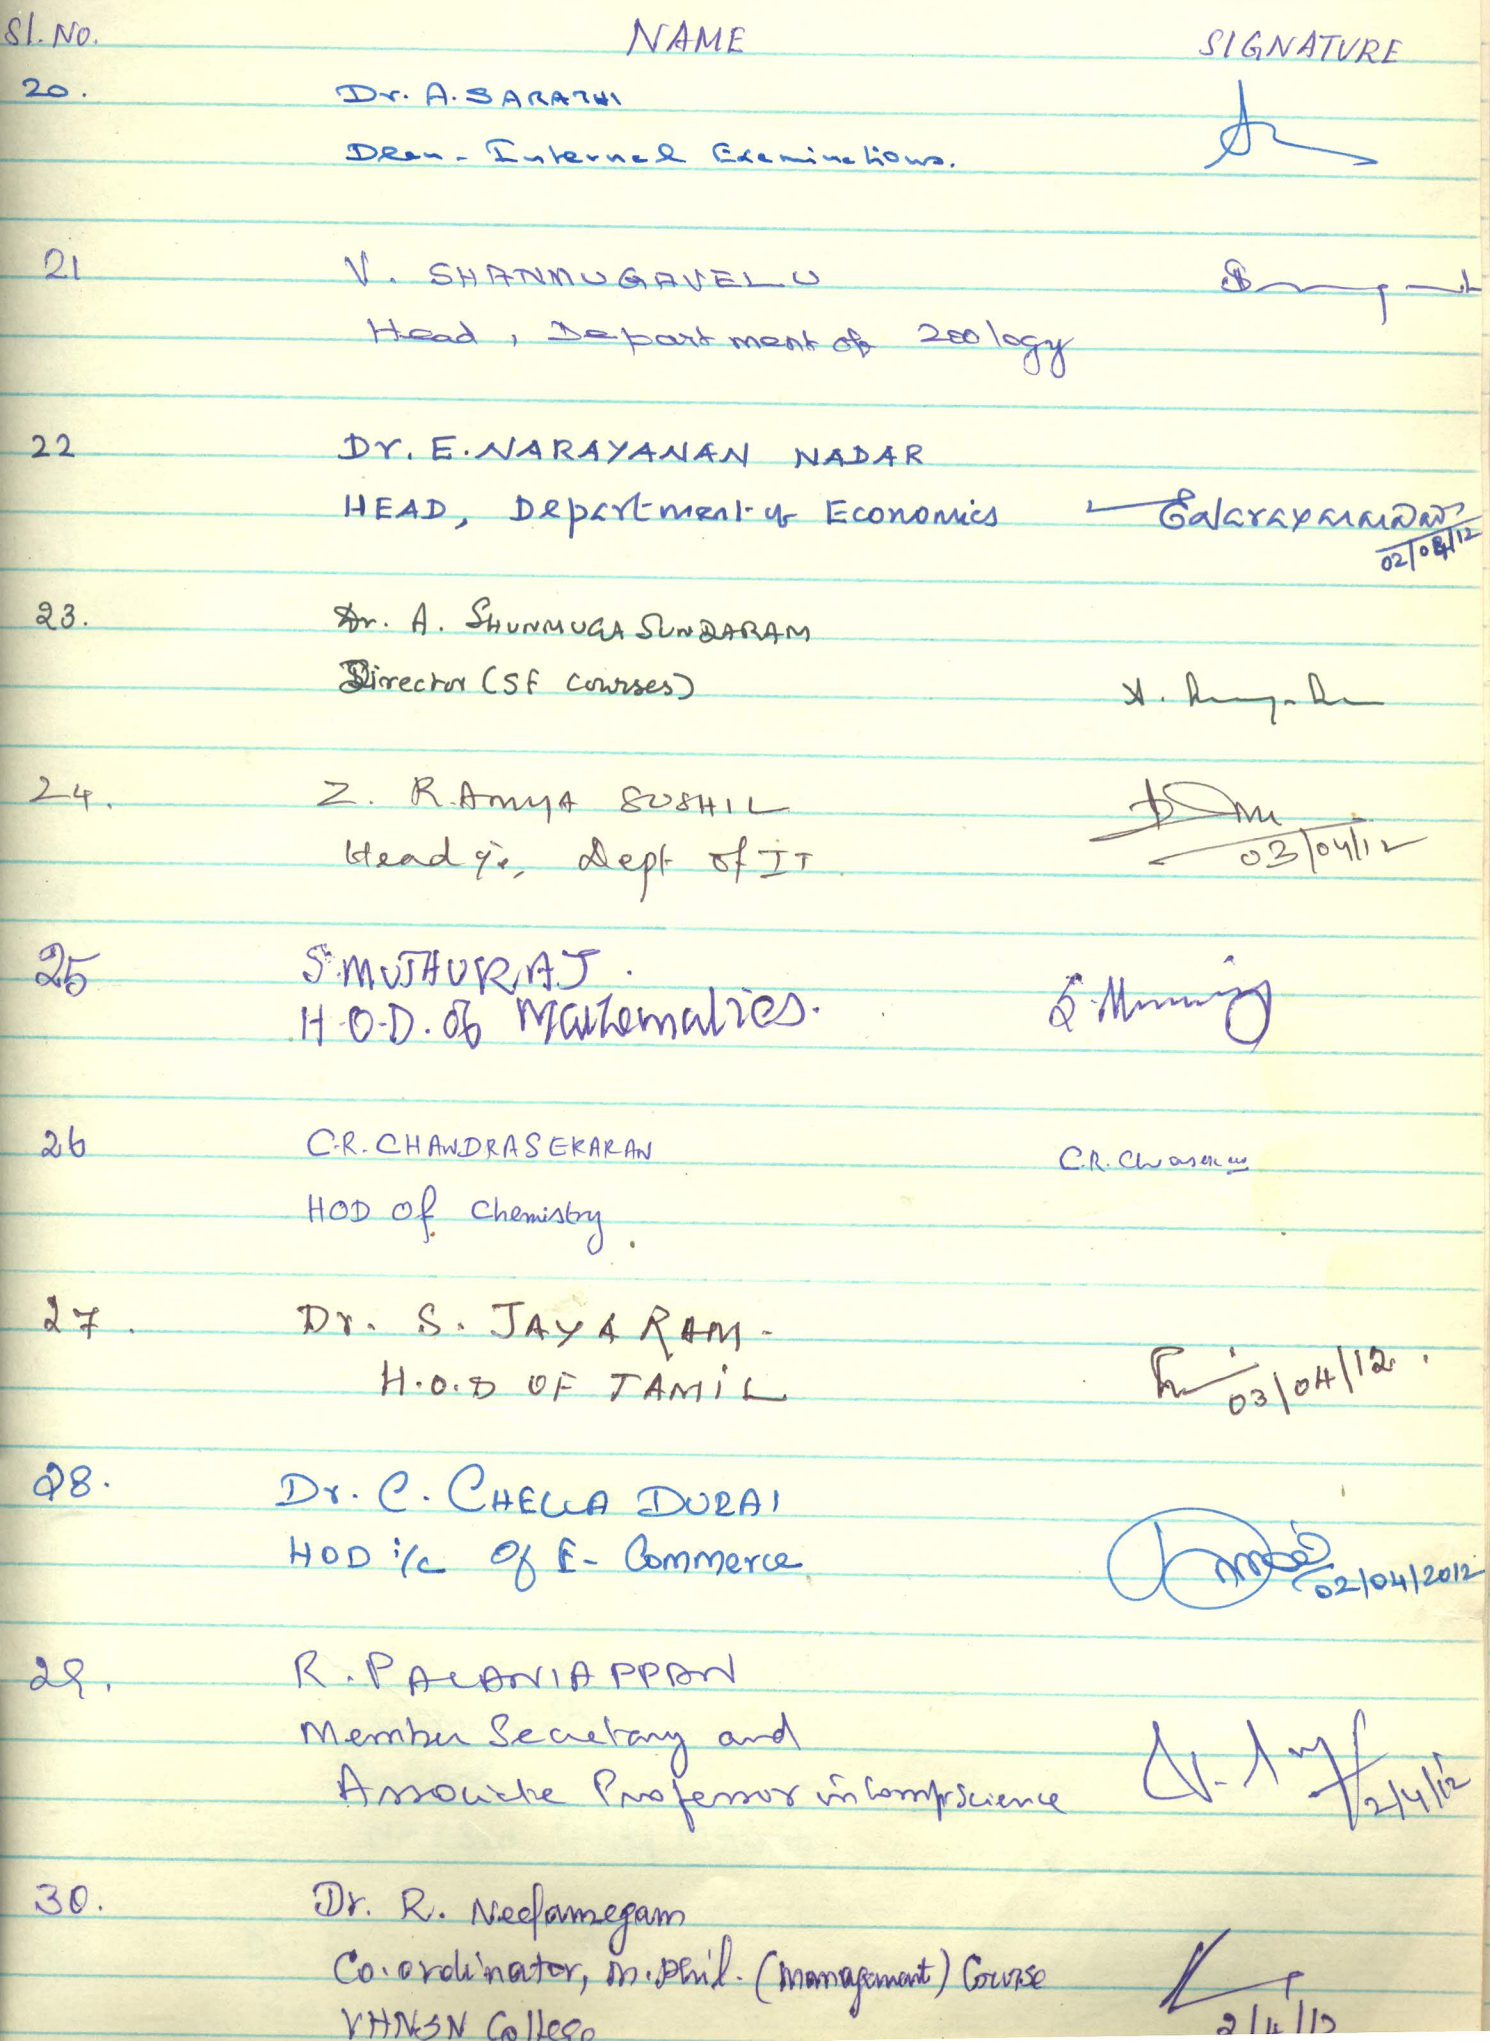 Sl. No. NAME SIGNATURE
20. Dr. A. SARATHI
Dean - Internal Examinations.
21 V. SHANMUGAVELU
Head, Department of Zoology
22 Dr. E. NARAYANAN NADAR
HEAD, Department of Economics
02/04/12
23. Dr. A. SHUNMUGA SUNDARAM
Director (SF Courses)
24. Z. RAMYA SUSHIL
Head i/c, Dept of IT
03/04/12
25 S. MUTHURAJ.
H.O.D. of Mathematics.
26 C.R. CHANDRASEKARAN
C.R.
HOD of Chemistry.
27. Dr. S. JAYARAM.
H.O.D OF TAMIL
03/04/12.
28. Dr. C. CHELLA DURAI
HOD i/c of E- Commerce
02/04/2012
29. R. PALANIAPPAN
Member Secretary and
Associate Professor in Comp. Science
2/4/12
30. Dr. R. Neelamegam
Co.ordinator, M.Phil. (Management) Course
VHNSN College
2/4/12